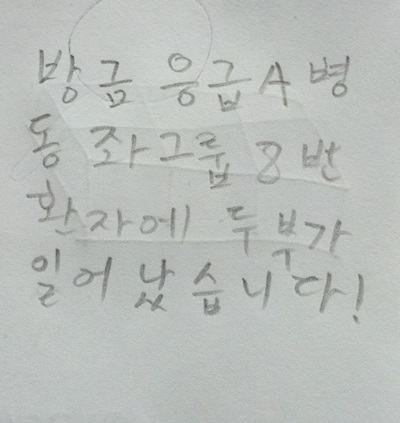 방금 응급A병
동 좌그룹 8번
환자에 두부가
일어났습니다!